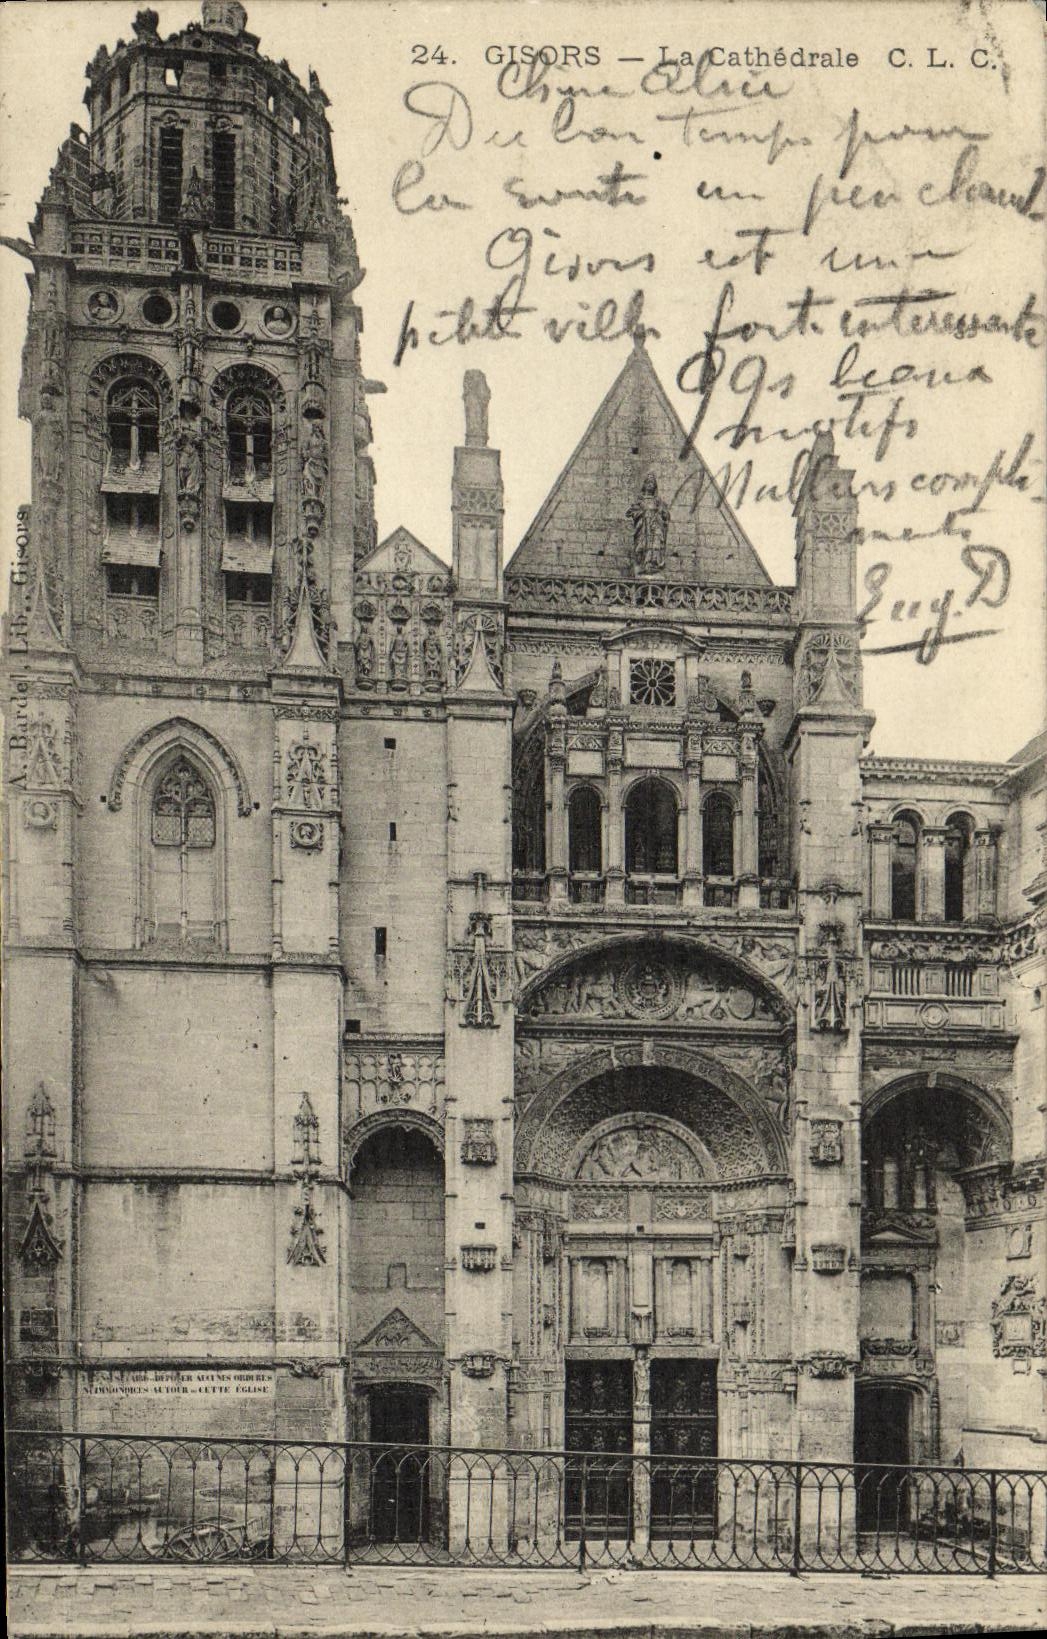 24. GISORS — La Cathédrale C. L. C.
Chère
Du bon temps pour
la route un peu chaud
Gisors est une
petite ville fort intéressante
qqs beaux
motifs
Meilleurs compli-
ments
Eug. D
A. Bardel, Lib., Gisors
DÉPOSER AUCUNES ORDURES
NI IMMONDICES AUTOUR DE CETTE ÉGLISE